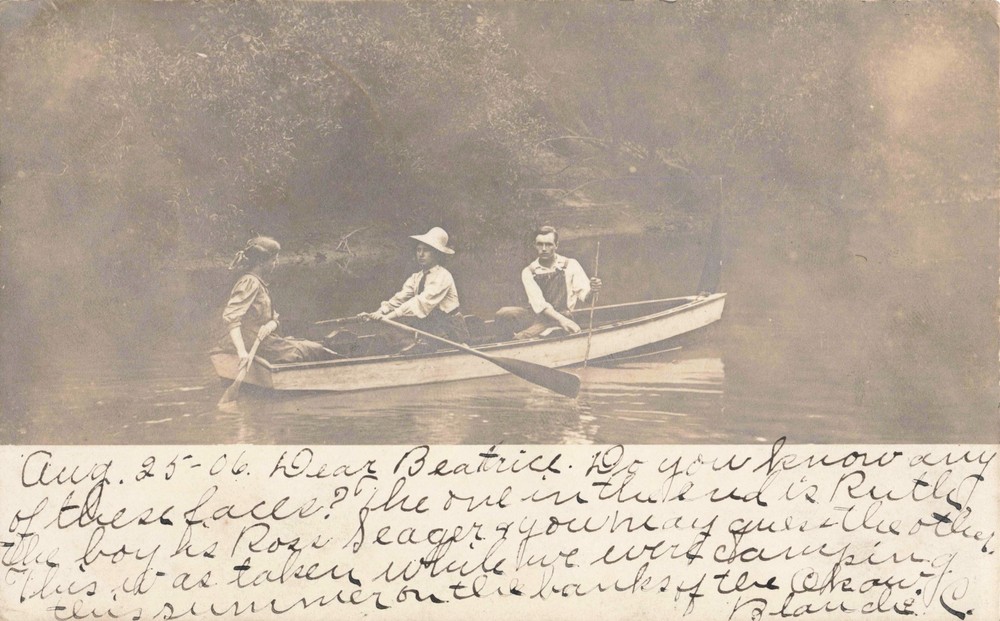 Aug. 25-06. Dear Beatrice. Do you know any
of these faces? The one in the end is Ruth,
the boy is Ross Seager & you may guess the other.
This was taken while we were camping
this summer on the banks of the Okaw.
Blanche. C.